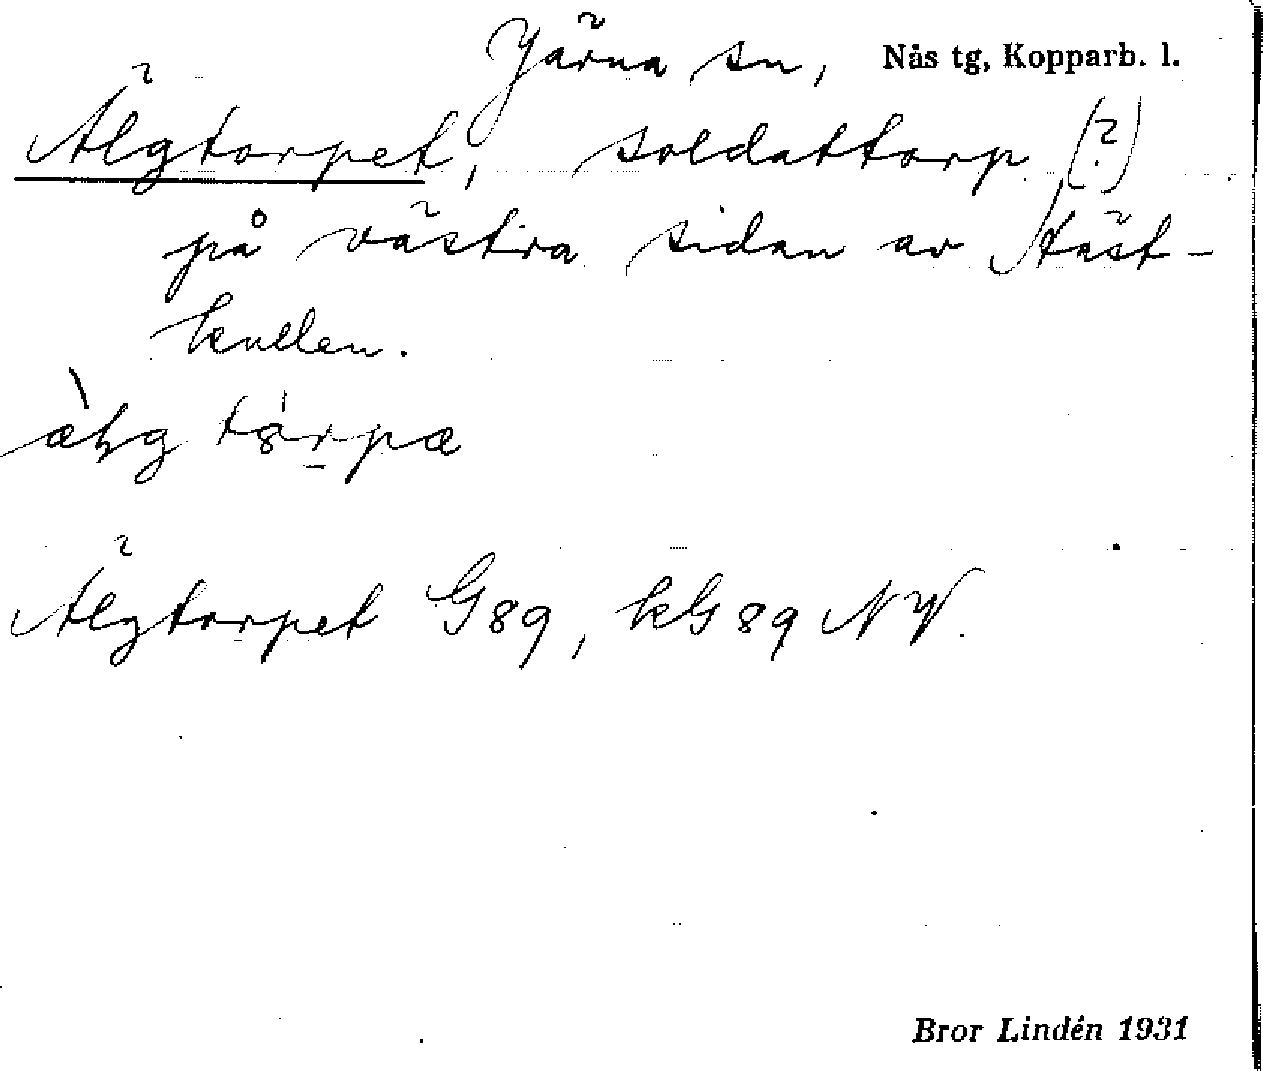 Järna sn, Nås tg, Kopparb. l.
Älgtorpet, soldattorp (?)
på västra sidan av Häst-
kullen.
Älgtorpet G89, kG89 NV.
Bror Lindén 1931